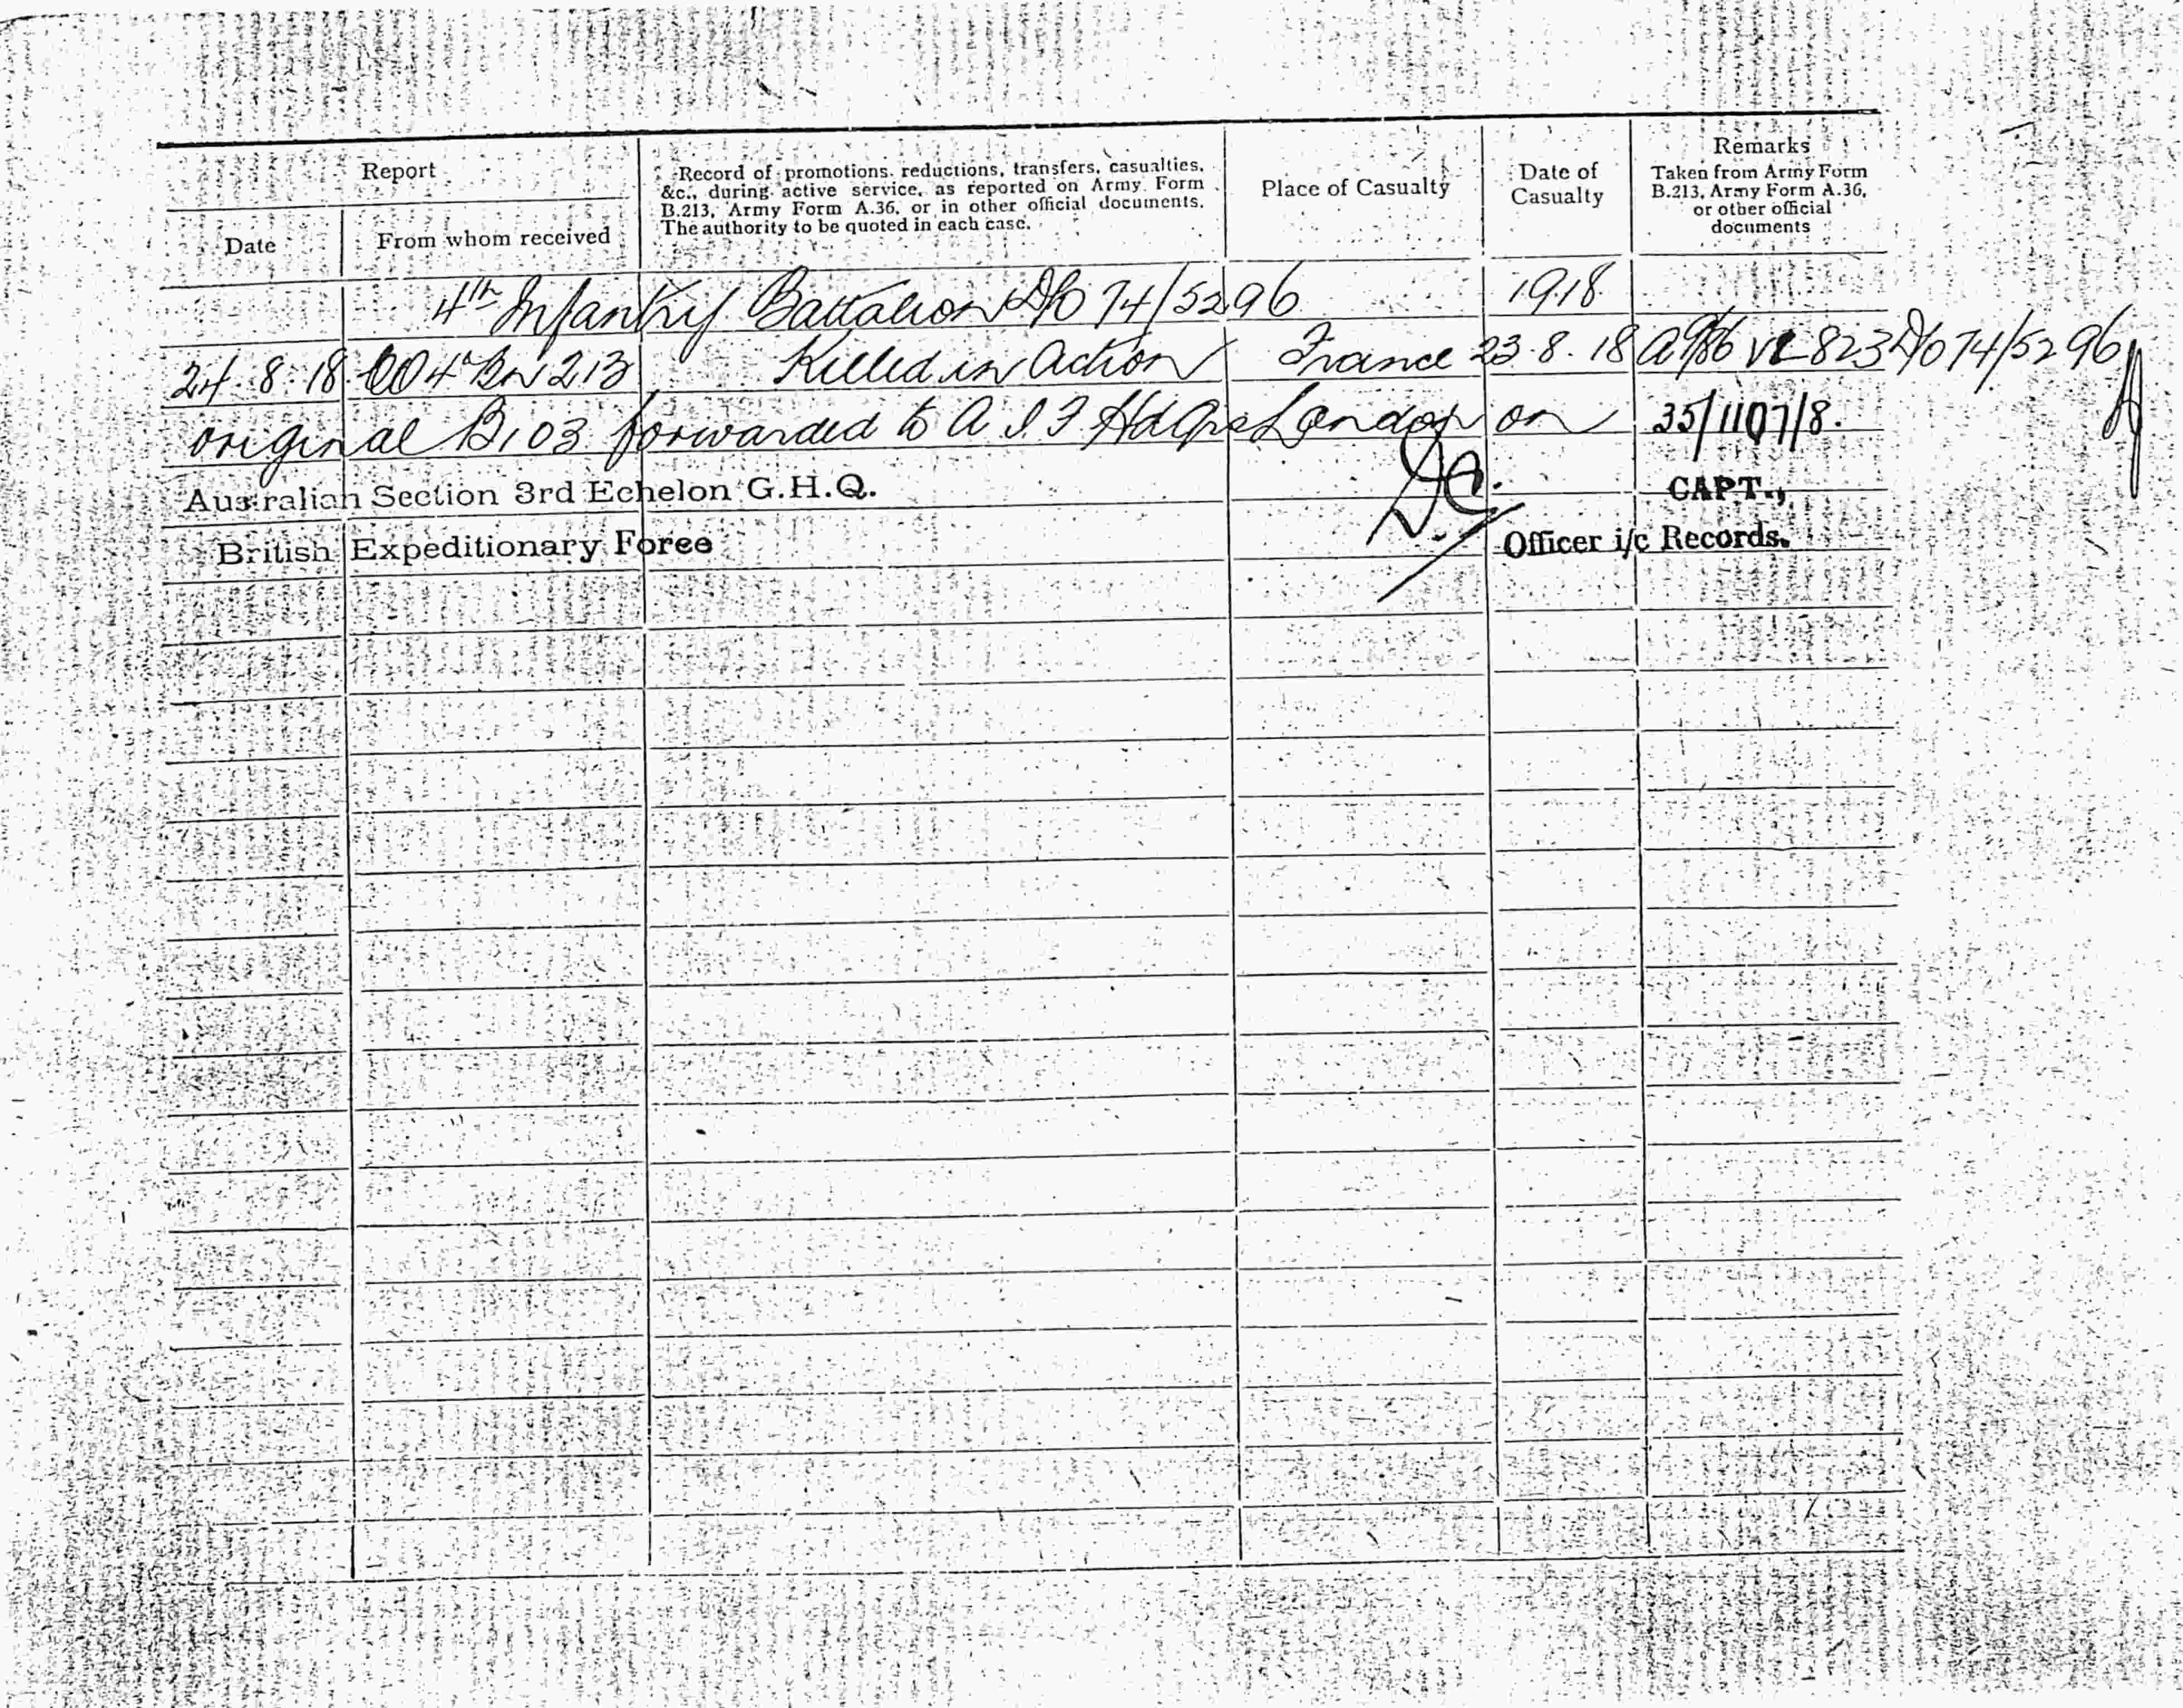 Report
Record of promotions, reductions, transfers, casualties,
&c., during active service, as reported on Army Form
B.213, Army Form A.36, or in other official documents.
The authority to be quoted in each case.
Place of Casualty
Date of
Casualty
Remarks
Taken from Army Form
B.213, Army Form A.36,
or other official
documents
Date
From whom received
4th Infantry Battalion D/o 74/5296 1918
24.8.18 CO 4th Bn 213 Killed in Action France 23.8.18 823 D/o 74/5296
original B103 forwarded to A I F Hdqrs London on 35/1107/8.
Australian Section 3rd Echelon G.H.Q. CAPT.,
British Expeditionary Force Officer i/c Records.